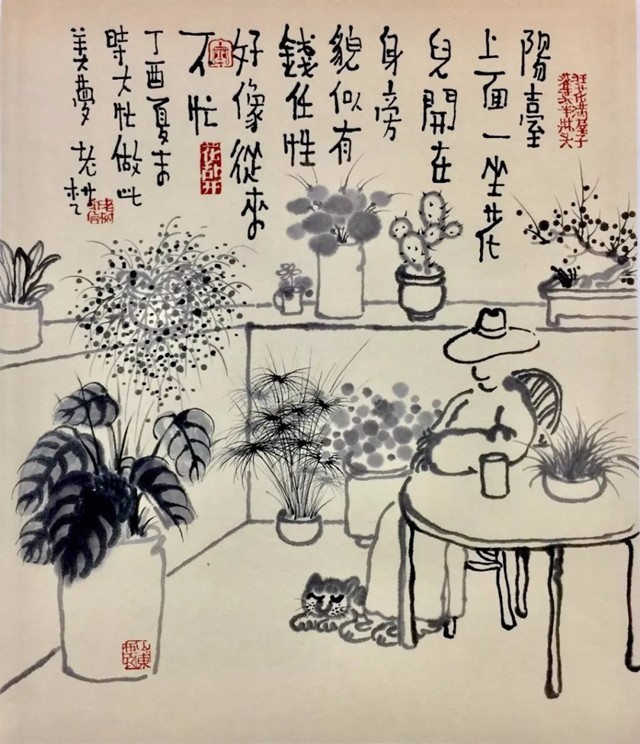 陽臺
上面一坐花
兒開在
身旁
貌似有
錢任性
好像從來
不忙
丁酉夏末
時大忙做此
美夢 老樹
花乱开